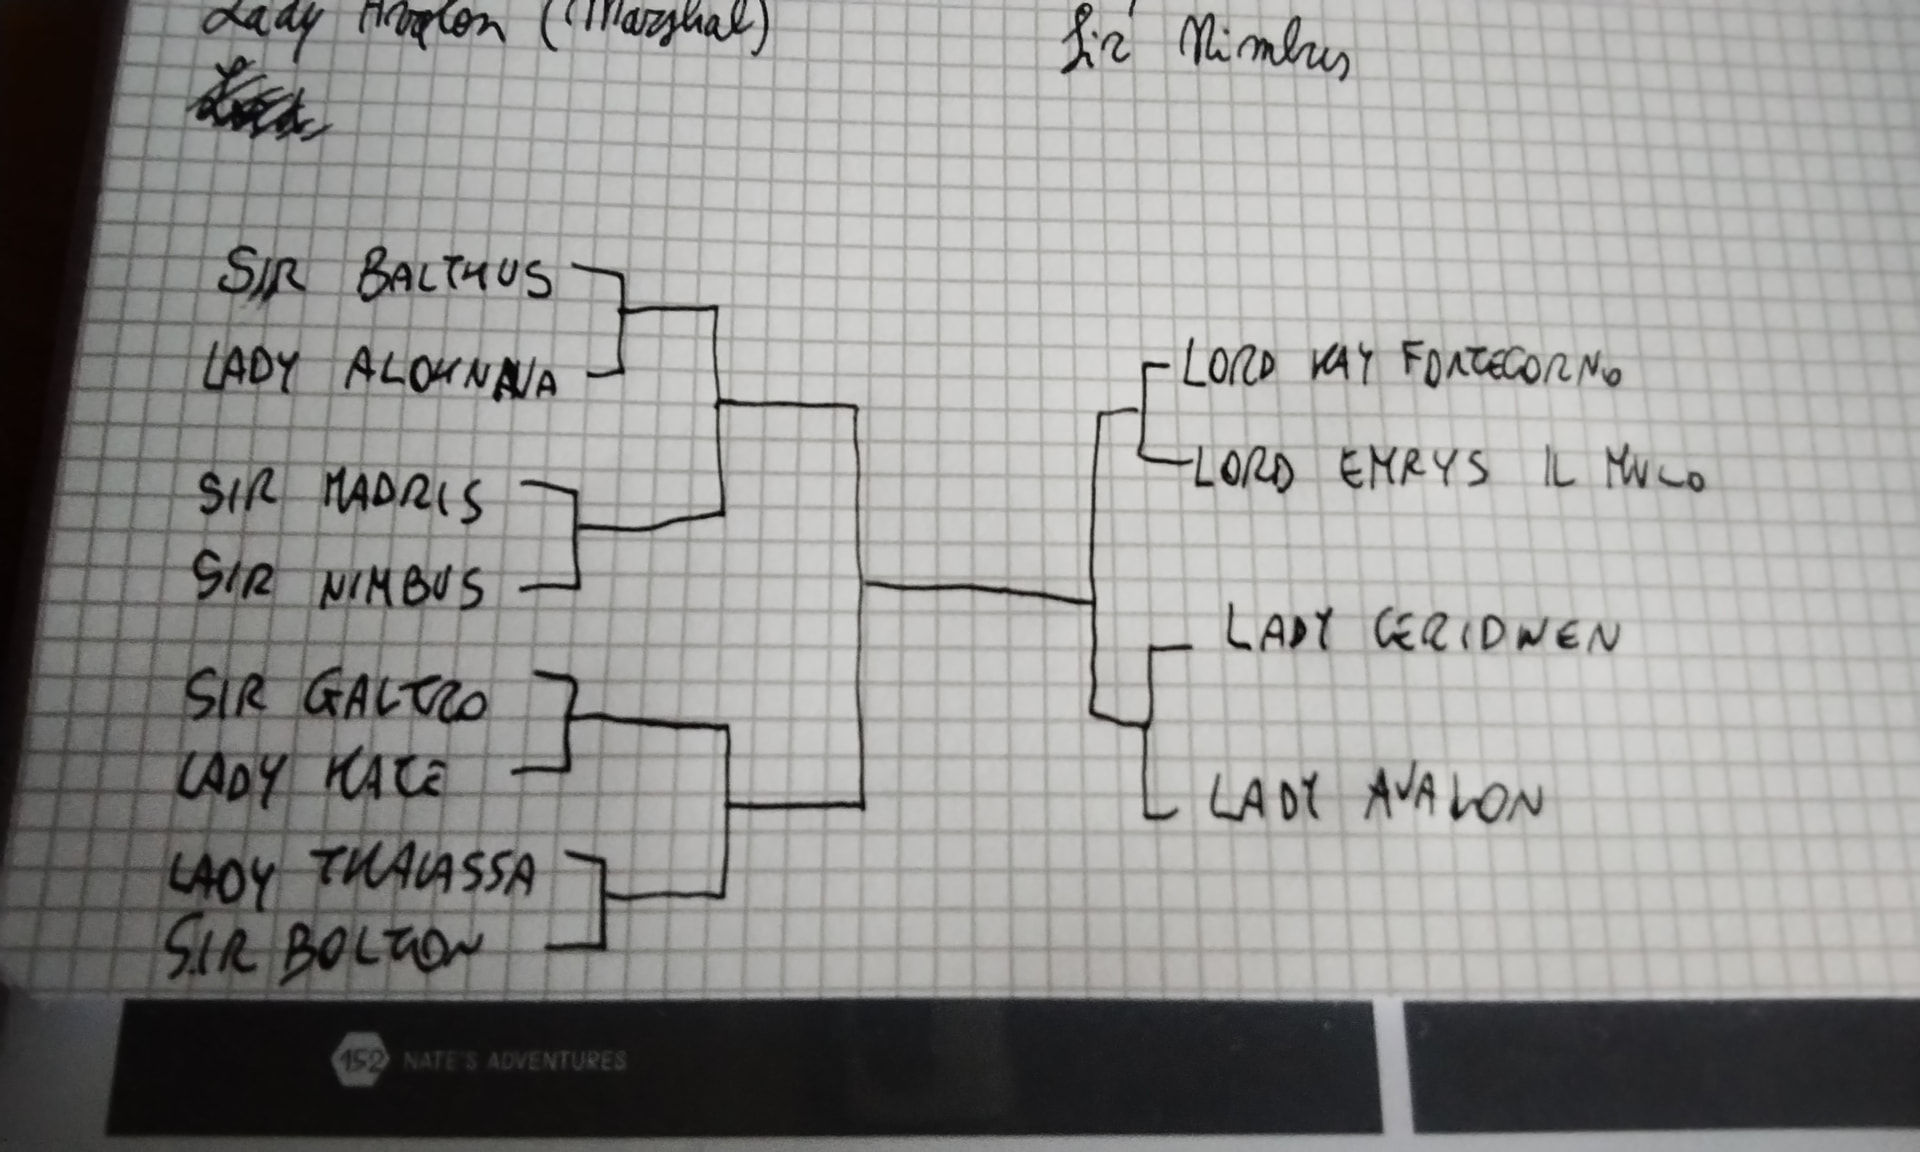 Lady Avalon (Marshal)
Sir Nimbus
SIR BALTHUS
LADY
SIR MADRIS
SIR NIMBUS
SIR GALTRO
LADY KATE
LADY THALASSA
SIR BOLTON
LORD KAY FORTECORNO
LORD EMRYS IL MULO
LADY CERIDWEN
LADY AVALON
152 NATE'S ADVENTURES